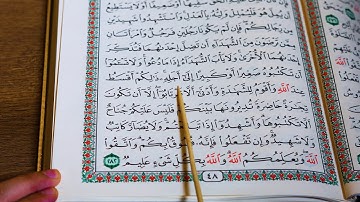 أَن يُمِلَّ هُوَ فَلْيُمْلِلْ وَلِيُّهُۥ بِٱلْعَدْلِ وَٱسْتَشْهِدُوا۟ شَهِيدَيْنِ
مِن رِّجَالِكُمْ فَإِن لَّمْ يَكُونَا رَجُلَيْنِ فَرَجُلٌ وَٱمْرَأَتَانِ
مِمَّن تَرْضَوْنَ مِنَ ٱلشُّهَدَآءِ أَن تَضِلَّ إِحْدَىٰهُمَا فَتُذَكِّرَ
إِحْدَىٰهُمَا ٱلْأُخْرَىٰ وَلَا يَأْبَ ٱلشُّهَدَآءُ إِذَا مَا دُعُوا۟ وَلَا تَسْـَٔمُوٓا۟
أَن تَكْتُبُوهُ صَغِيرًا أَوْ كَبِيرًا إِلَىٰٓ أَجَلِهِۦ ذَٰلِكُمْ أَقْسَطُ
عِندَ ٱللَّهِ وَأَقْوَمُ لِلشَّهَـٰدَةِ وَأَدْنَىٰٓ أَلَّا تَرْتَابُوٓا۟ إِلَّآ أَن تَكُونَ
تِجَـٰرَةً حَاضِرَةً تُدِيرُونَهَا بَيْنَكُمْ فَلَيْسَ عَلَيْكُمْ جُنَاحٌ
أَلَّا تَكْتُبُوهَا وَأَشْهِدُوٓا۟ إِذَا تَبَايَعْتُمْ وَلَا يُضَآرَّ كَاتِبٌ
وَلَا شَهِيدٌ وَإِن تَفْعَلُوا۟ فَإِنَّهُۥ فُسُوقٌۢ بِكُمْ وَٱتَّقُوا۟
ٱللَّهَ وَيُعَلِّمُكُمُ ٱللَّهُ وَٱللَّهُ بِكُلِّ شَىْءٍ عَلِيمٌ ٢٨٢
٤٨